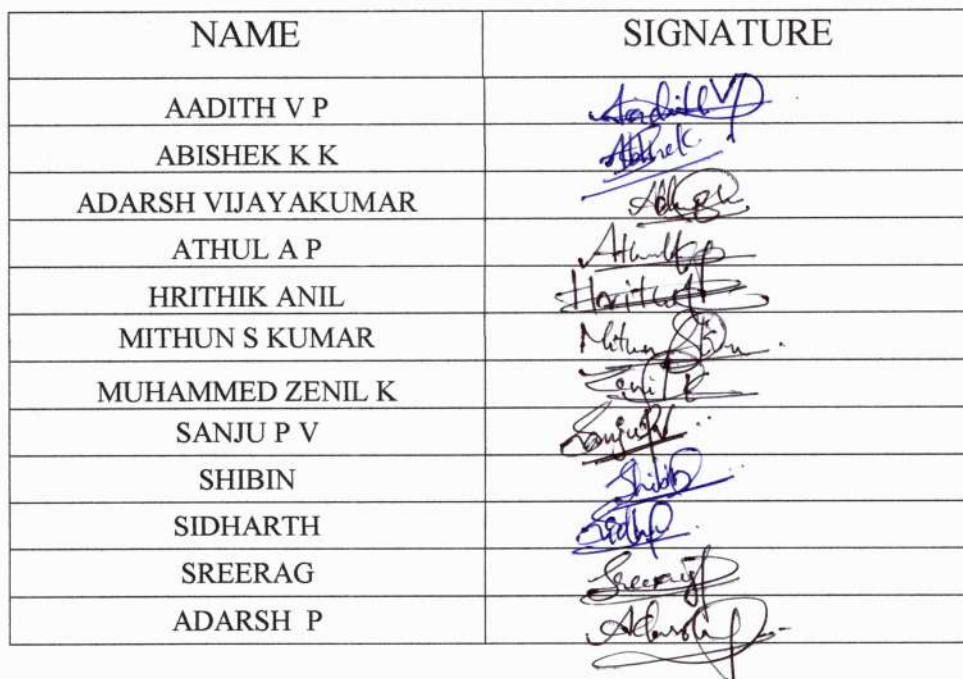 NAME SIGNATURE
AADITH V P Aadith V P
ABISHEK K K Abishek
ADARSH VIJAYAKUMAR
ATHUL A P Athul A P
HRITHIK ANIL
MITHUN S KUMAR Mithun
MUHAMMED ZENIL K Zenil K
SANJU P V Sanju P V
SHIBIN Shibin
SIDHARTH Sidh
SREERAG Sreerag
ADARSH P Adarsh P